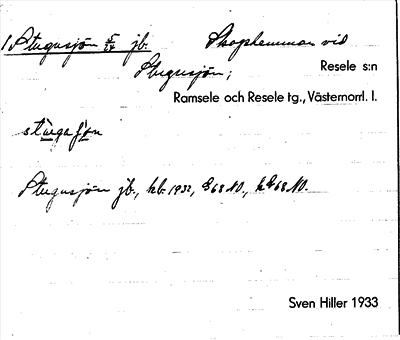 1 Stugusjön 5/24 jb. Skogshemman vid
Stugusjön; Resele s:n
Ramsele och Resele tg., Västernorrl. l.
Stugusjön jb., kb. 1932, G 68 NO., k G 68 NO.
Sven Hiller 1933